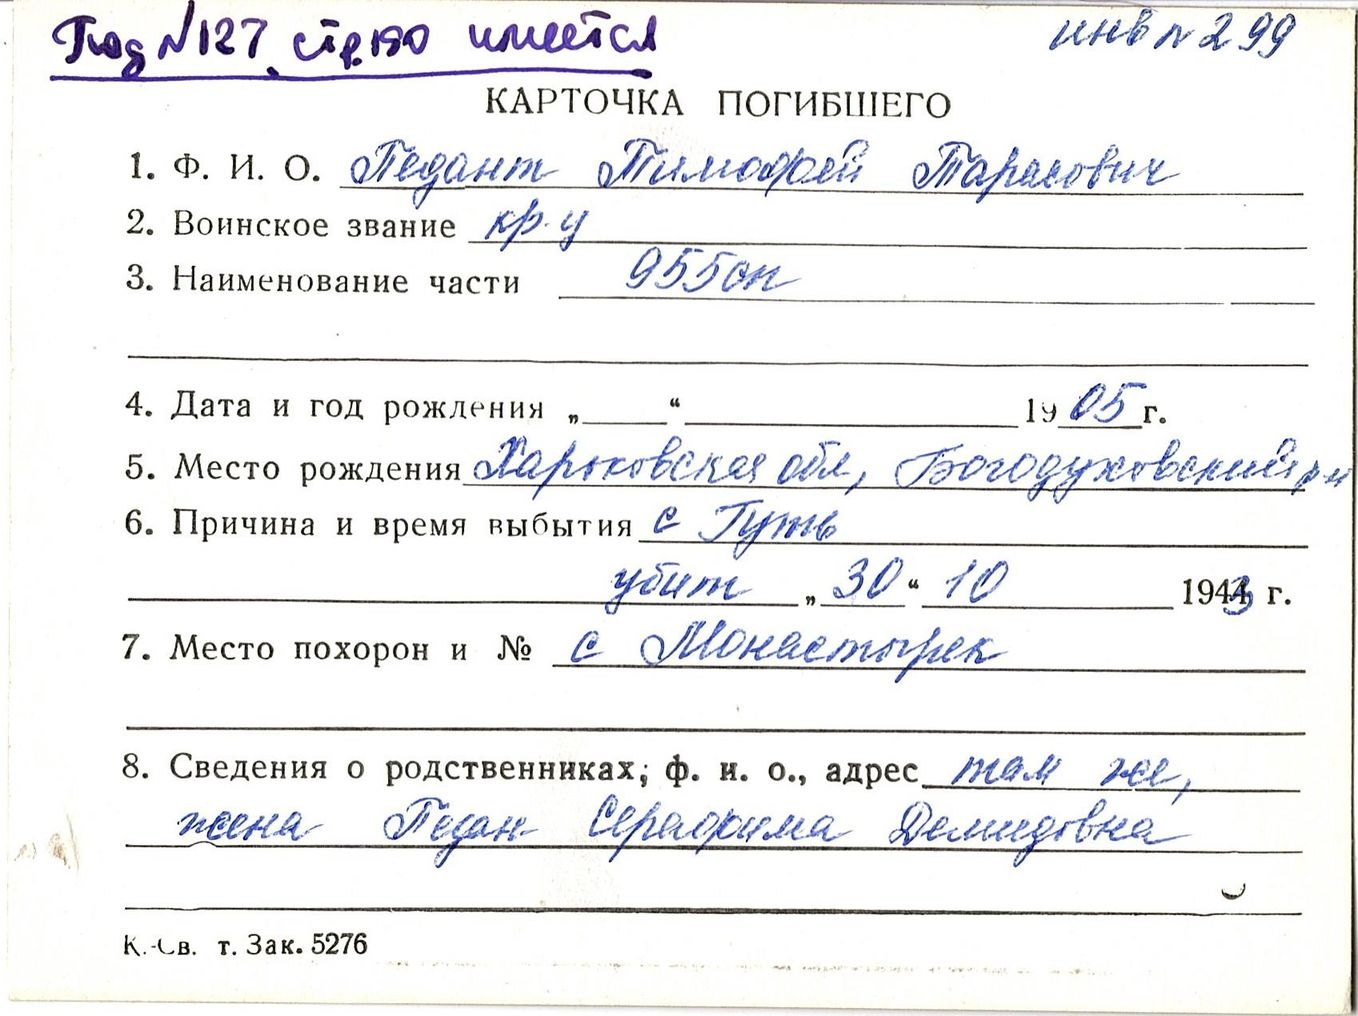 Под №127, стр. 190 имеется
инв № 299
КАРТОЧКА ПОГИБШЕГО
1. Ф. И. О. Педант Тимофей Тарасович
2. Воинское звание кр-ц
3. Наименование части 955 сп
4. Дата и год рождения „ “ 1905 г.
5. Место рождения Харьковская обл, Богодуховский р-н
6. Причина и время выбытия с Путь
убит „30“ 10 1943 г.
7. Место похорон и № с Монастырек
8. Сведения о родственниках; ф. и. о., адрес там же,
жена Педан Серафима Демидовна
К.-Св. т. Зак. 5276